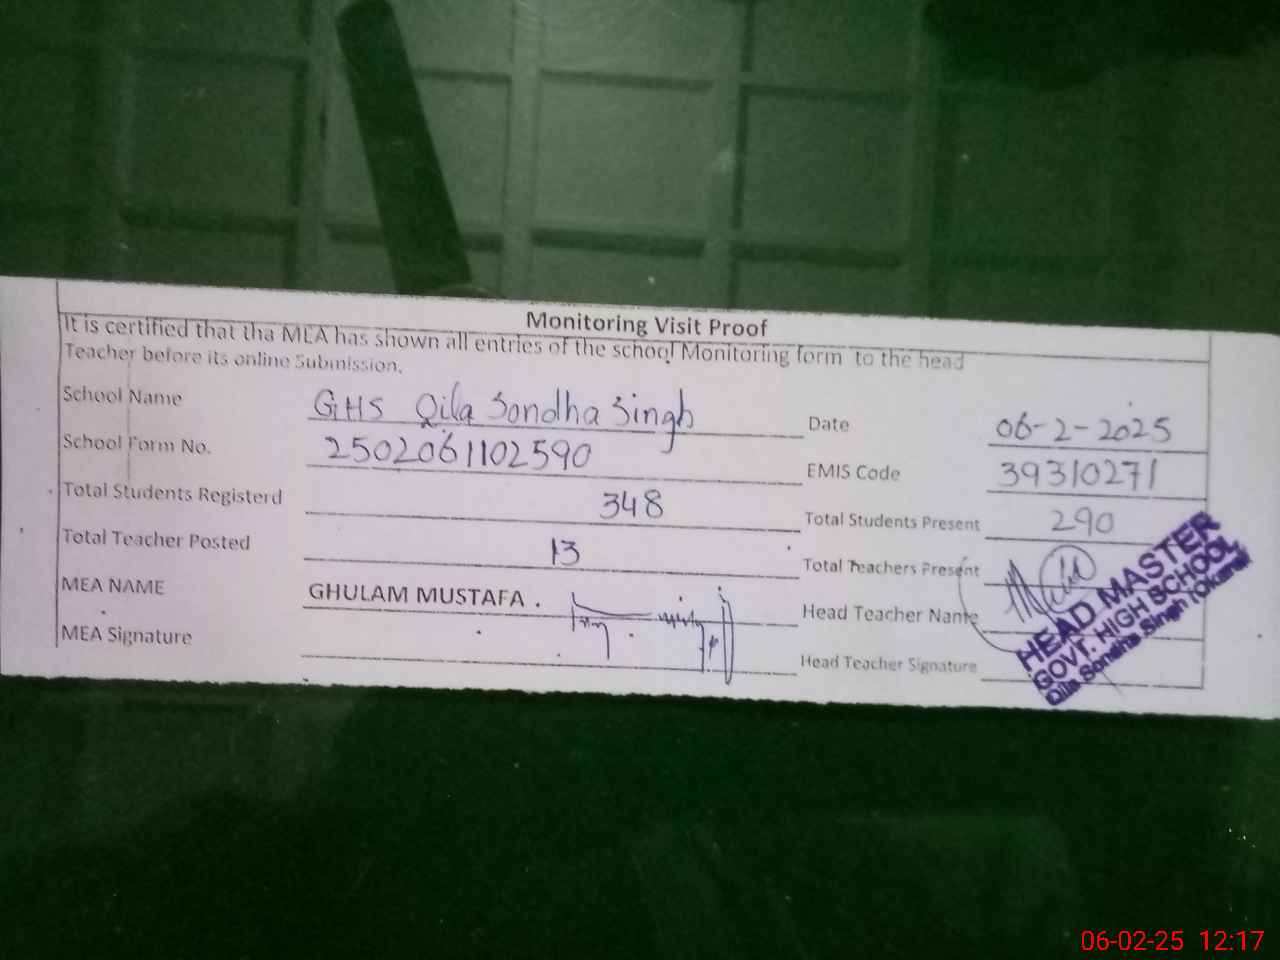 Monitoring Visit Proof
It is certified that tha MEA has shown all entries of the school Monitoring form to the head
Teacher before its online Submission.
School Name GHS Qila Sondha Singh Date 06-2-2025
School Form No. 2502061102590 EMIS Code 39310271
Total Students Registerd 348 Total Students Present 290
Total Teacher Posted 13 Total Teachers Present
MEA NAME GHULAM MUSTAFA . Head Teacher Name
MEA Signature Head Teacher Signature
HEAD MASTER
GOVT. HIGH SCHOOL
Qila Sondha Singh (Okara)
06-02-25 12:17